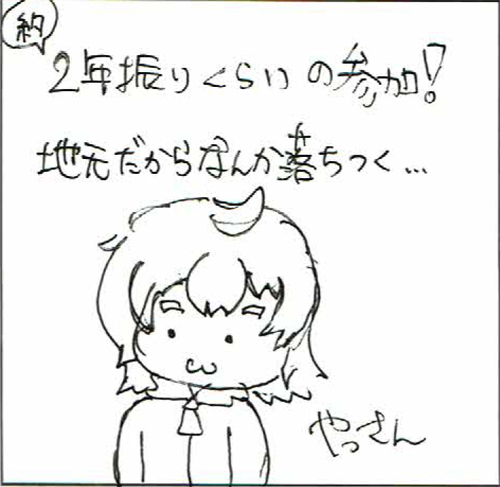 約
2年振りくらいの参加!
地元だからなんか落ちつく...
やっさん